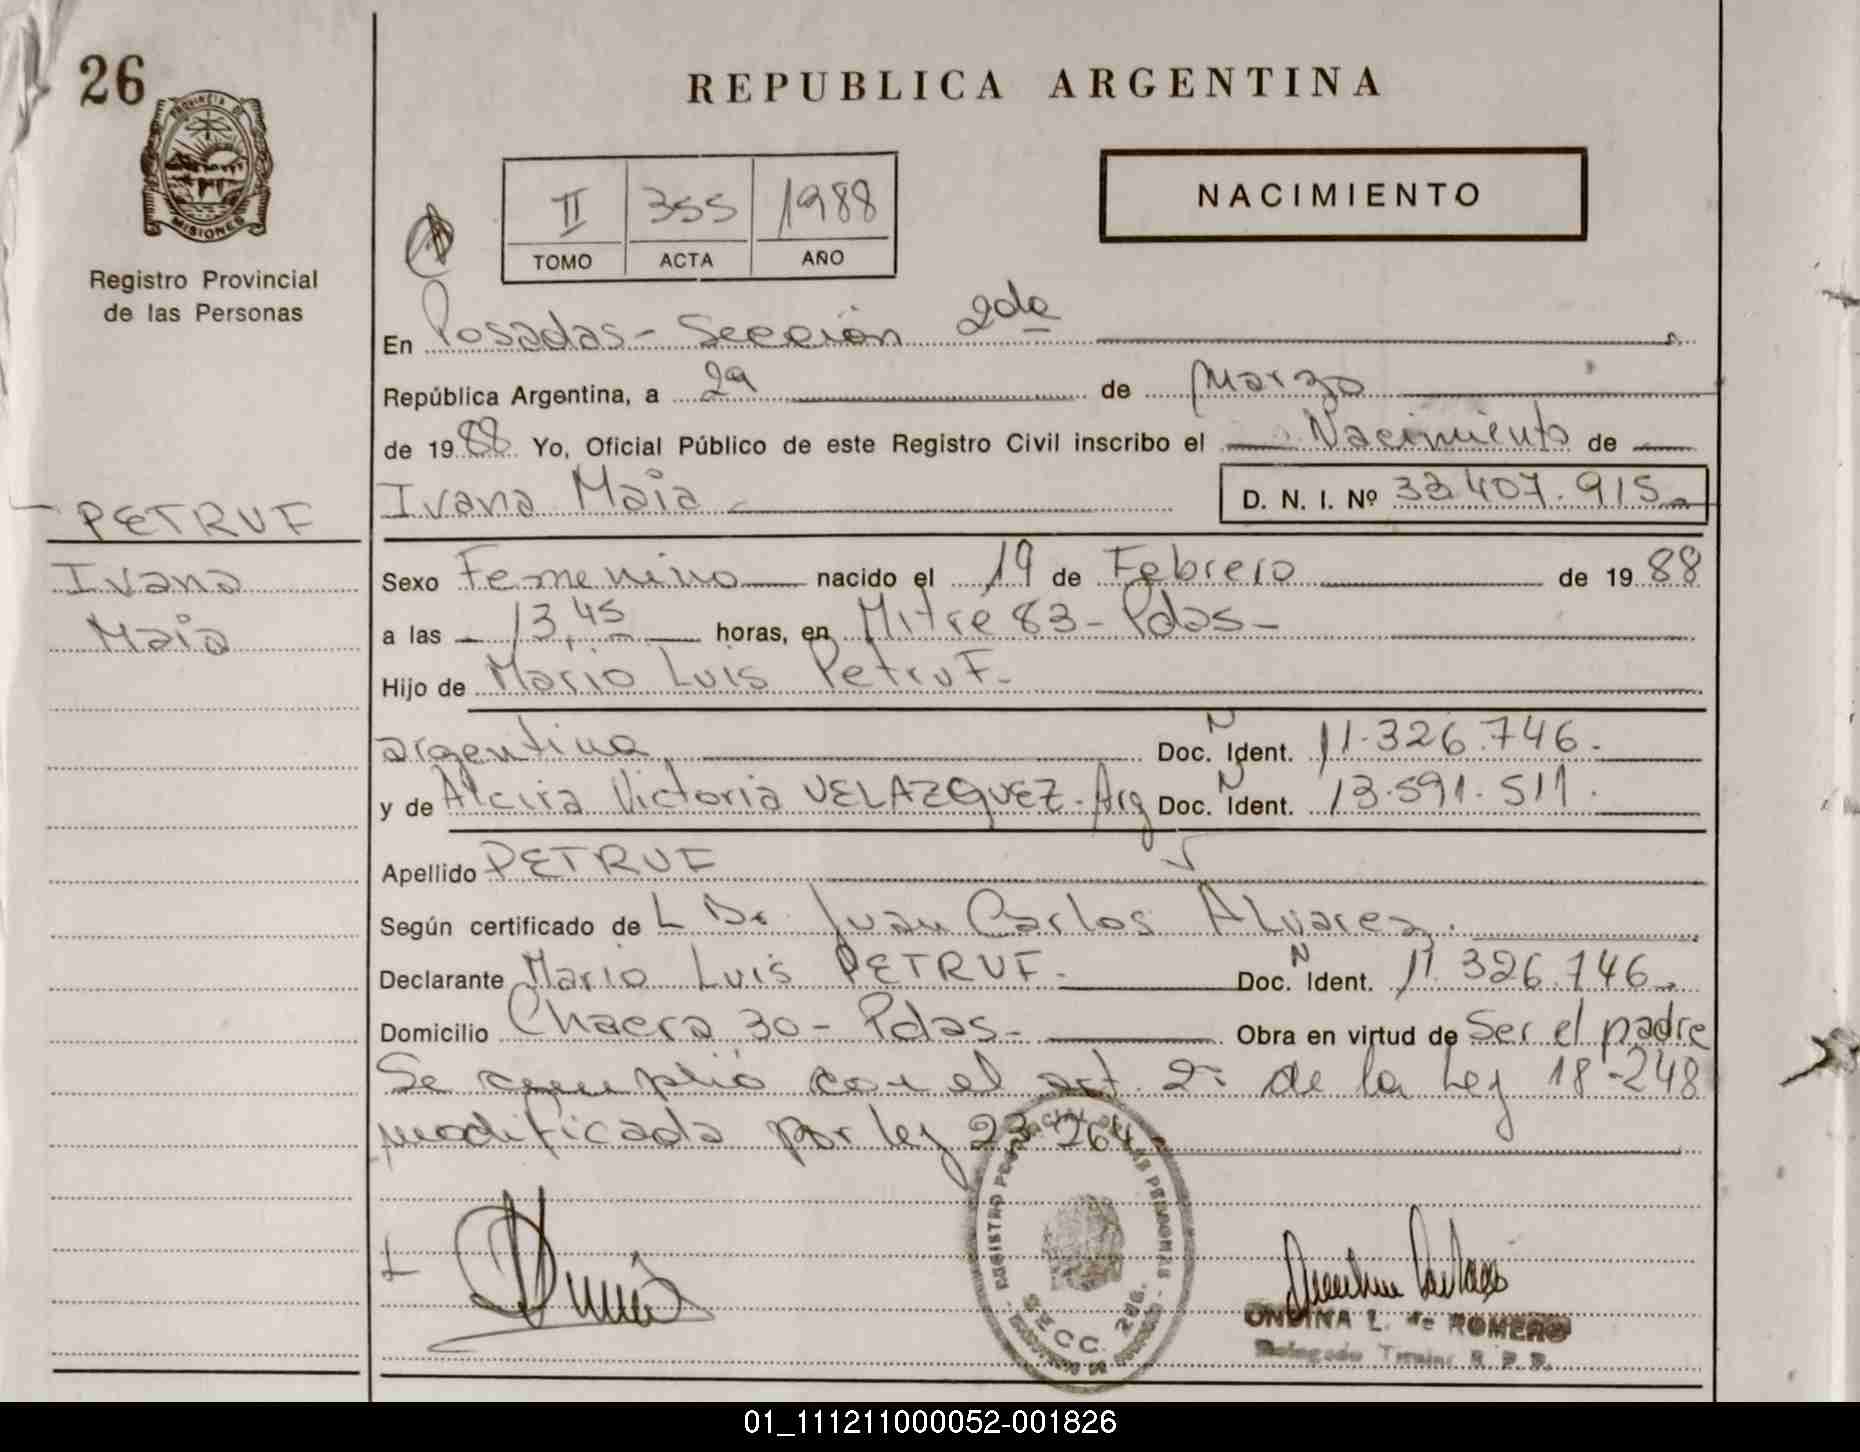 26
REPUBLICA ARGENTINA
PROVINCIA DE
MISIONES
Registro Provincial
de las Personas
II 355 1988
TOMO ACTA AÑO
NACIMIENTO
En Posadas - Sección 2da
República Argentina, a 29 de Marzo
de 1988 Yo, Oficial Público de este Registro Civil inscribo el Nacimiento de
Ivana Maia D. N. I. Nº 33.407.915
PETRUF
Ivana
Maia
Sexo Femenino nacido el 19 de Febrero de 1988
a las 13,45 horas, en Mitre 83 - Pdas -
Hijo de Mario Luis Petruf.
argentino Doc. N Ident. 11.326.746.
y de Alcira Victoria VELAZQUEZ. Arg Doc. N Ident. 13.591.511.
Apellido PETRUF
Según certificado de L Dr. Juan Carlos Alvarez.
Declarante Mario Luis PETRUF. Doc. N Ident. 11.326.746
Domicilio Chacra 30 - Pdas. Obra en virtud de Ser el padre
Se cumplió con el art. 2º de la Ley 18-248
modificada por ley 23.264
REGISTRO PROVINCIAL DE LAS PERSONAS
SECC. 2da.
ONDINA L. de ROMERO
Delegado Titular R. P. P.
01_111211000052-001826